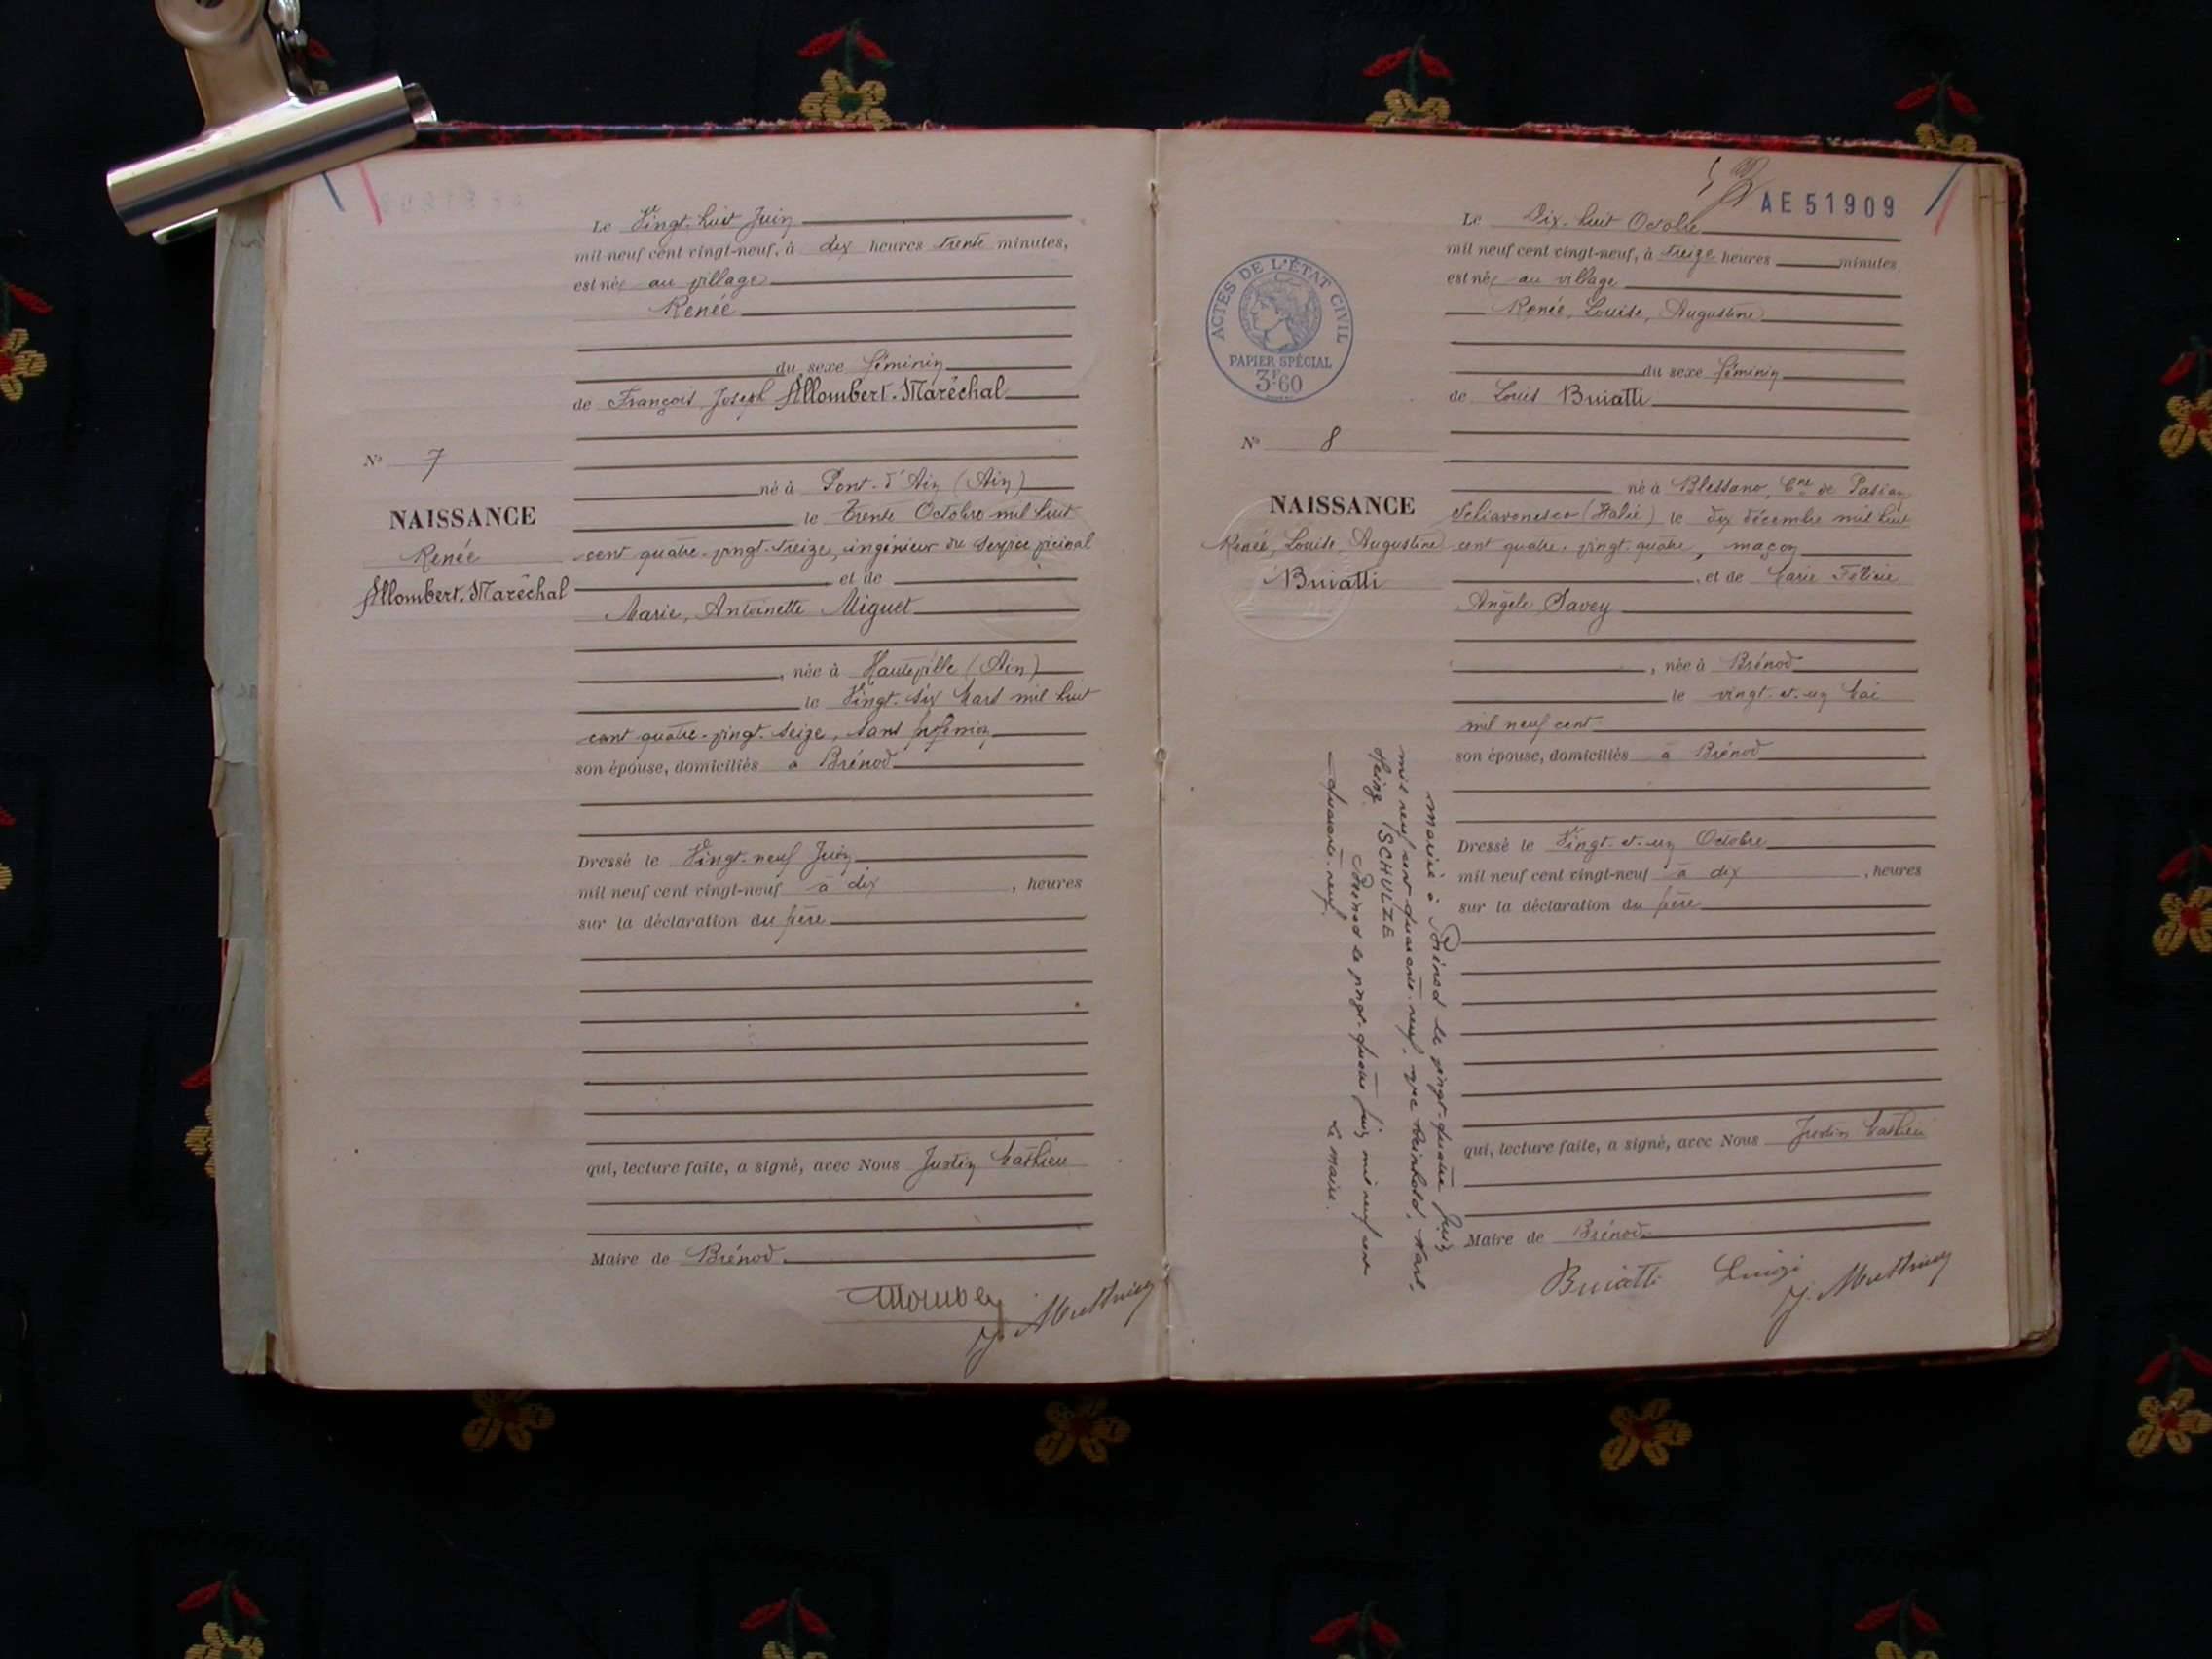 Le Vingt-huit Juin
mil neuf cent vingt-neuf, à dix heures trente minutes,
est née au village
Renée
du sexe féminin
de François Joseph Allombert-Maréchal
né à Pont-d'Ain (Ain)
le Trente Octobre mil huit
cent quatre-vingt-treize, ingénieur du service vicinal
et de
Marie, Antoinette Miguet
, née à Hauteville (Ain)
le Vingt-six Mars mil huit
cent quatre-vingt-seize, sans profession
son épouse, domiciliés à Brénod
Dressé le Vingt-neuf Juin
mil neuf cent vingt-neuf à dix , heures
sur la déclaration du père
qui, lecture faite, a signé, avec Nous Justin Mathieu
Maire de Brénod.
J. Matthieu
N° 7
NAISSANCE
Renée
Allombert-Maréchal
AE 51909
Le Dix-huit Octobre
mil neuf cent vingt-neuf, à treize heures minutes
est née au village
Renée, Louise, Augustine
du sexe féminin
de Louis Buiatti
né à Blessano, Cne de Pasian
Schiavonesco (Italie) le dix décembre mil huit
cent quatre-vingt-quatre, maçon
, et de Marie Félicie
Angèle Savey
, née à Brénod
le vingt-et-un Mai
mil neuf cent
son épouse, domiciliés à Brénod
Dressé le Vingt-et-un Octobre
mil neuf cent vingt-neuf à dix , heures
sur la déclaration du père
qui, lecture faite, a signé, avec Nous Justin Mathieu
Maire de Brénod.
Buiatti Luigi
J. Matthieu
ACTES DE L'ÉTAT CIVIL
PAPIER SPÉCIAL
3F.60
N° 8
NAISSANCE
Renée, Louise, Augustine
Buiatti
Mariée à Brénod le vingt-quatre Juin
mil neuf cent quarante-neuf avec Reinhold, Karl,
Heinz SCHULZE
Brénod le vingt-quatre Juin mil neuf cent
quarante-neuf.
Le Maire.